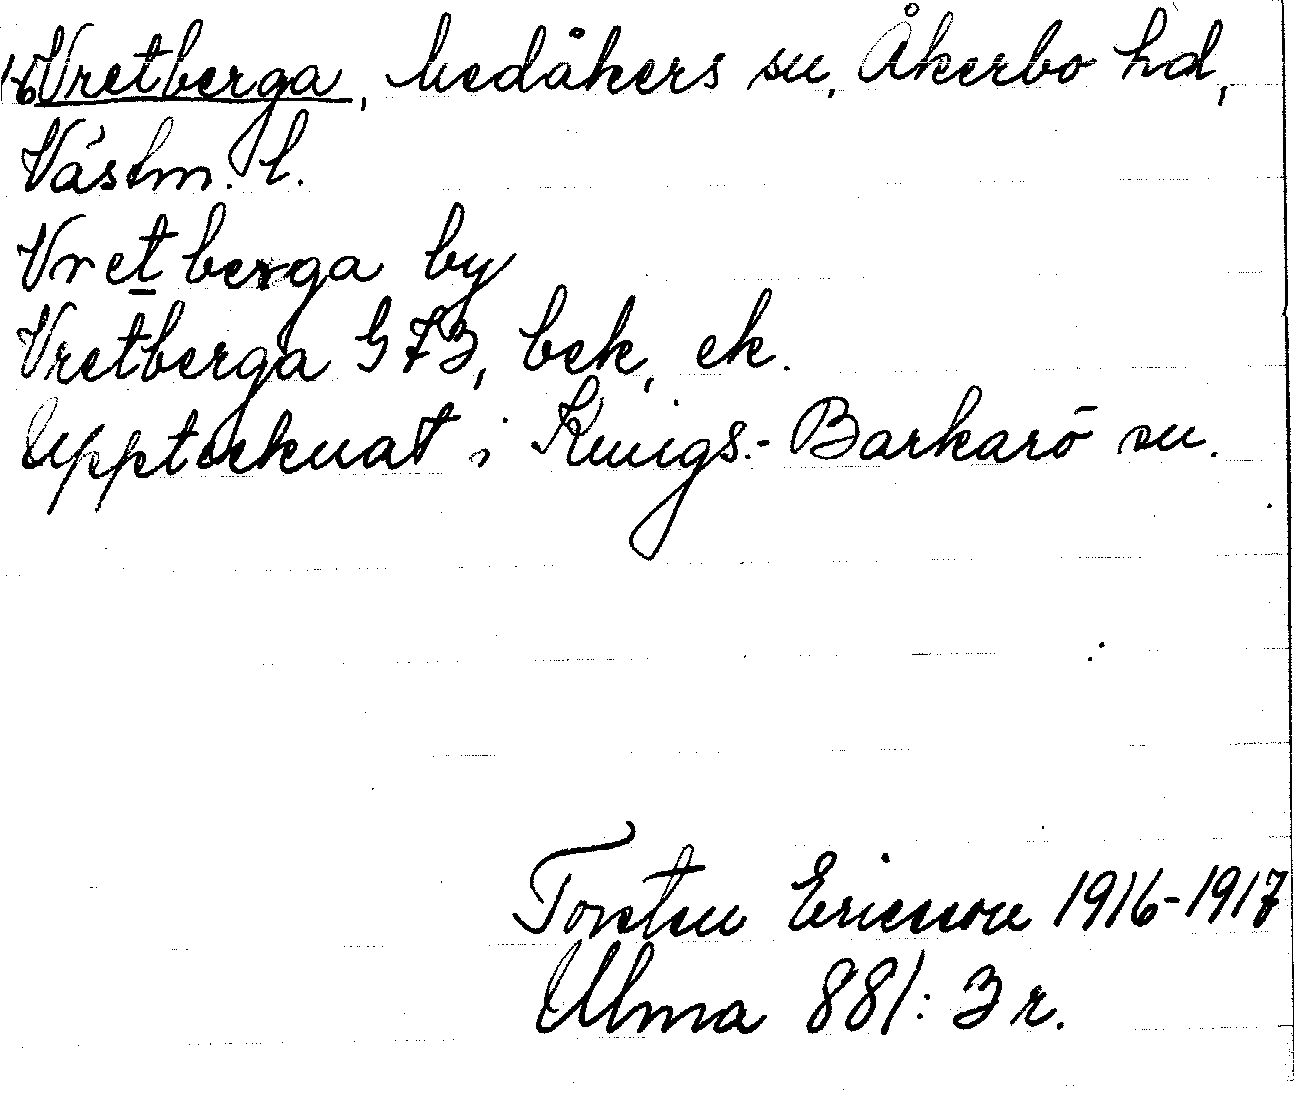 1-6 Vretberga, Medåkers sn, Åkerbo hd,
Västm. l.
Vretberga by
Vretberga G73, bek, ek.
Upptecknat i Kungs-Barkarö sn.
Torsten Ericsson 1916-1917
Ulma 881: 3 r.